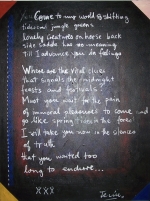 Come to my world of shifting
iridescent jungle greens
lovely creatures on horse back
side saddle has no meaning
Till I advance you do feelings
Where are the vital clues
that signals the midnight
feasts and festivals.
Must you wait in the pain
of immoral pleasures to come and
go like spring time in the forest
I will take you now in the silence
of truth
that you waited too
long to endure...
XXX